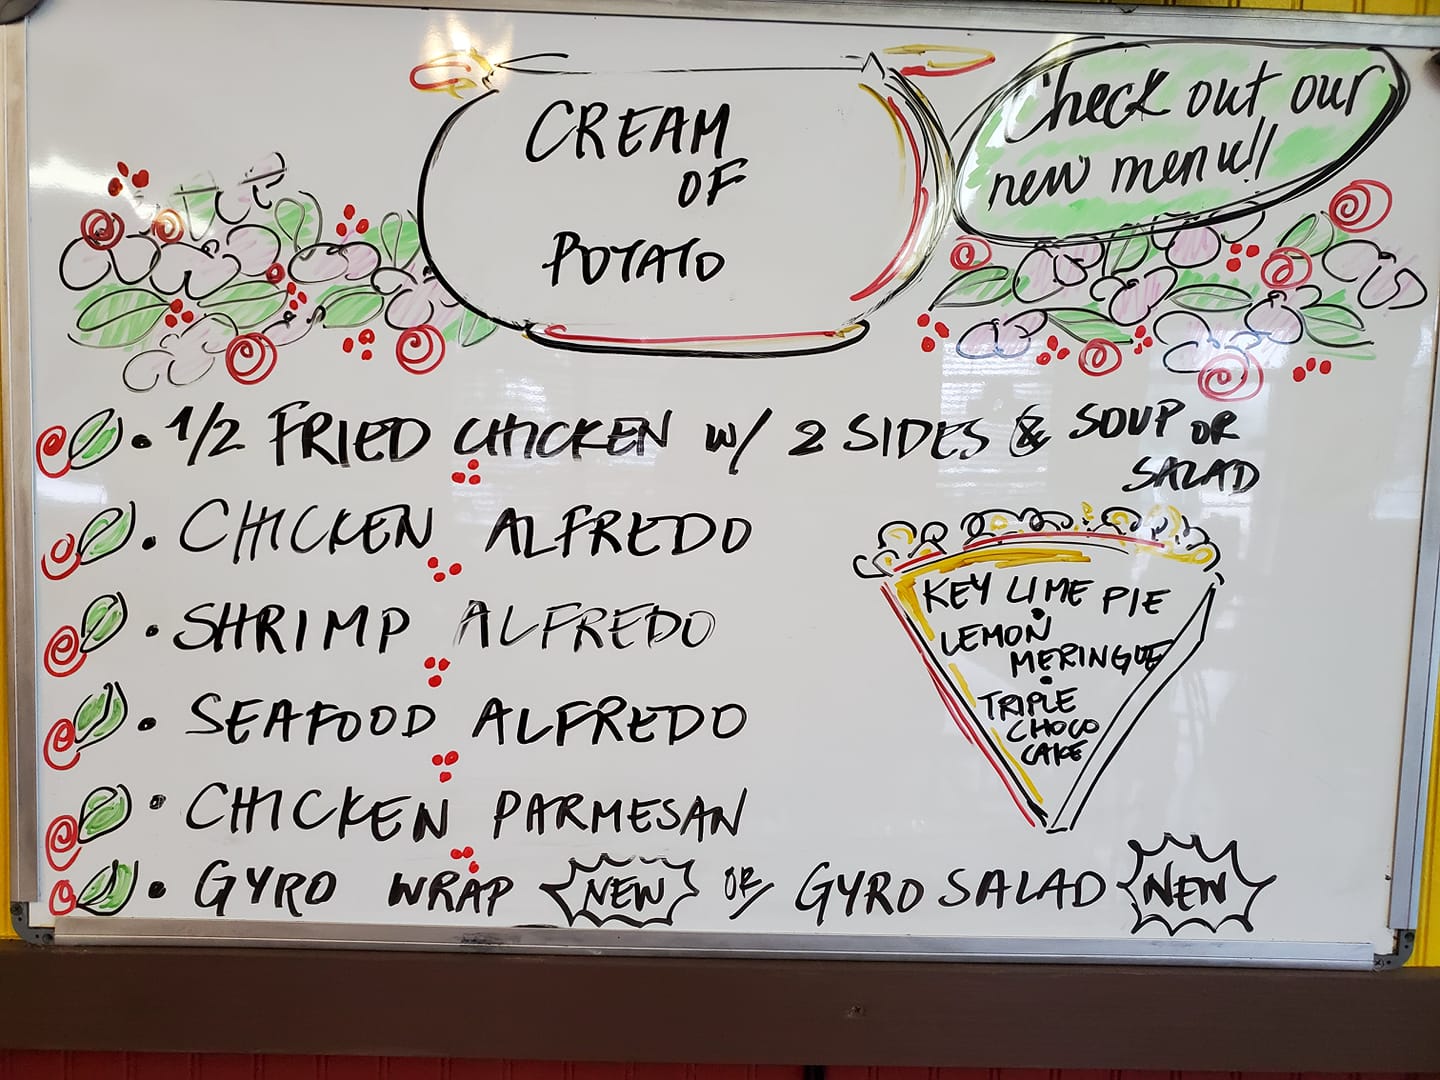 CREAM
OF
POTATO
Check out our
new menu!!
• 1/2 FRIED CHICKEN w/ 2 SIDES & SOUP OR
SALAD
• CHICKEN ALFREDO
• SHRIMP ALFREDO
• SEAFOOD ALFREDO
• CHICKEN PARMESAN
• GYRO WRAP NEW OR GYRO SALAD NEW
KEY LIME PIE
•
LEMON
MERINGUE
•
TRIPLE
CHOCO
CAKE